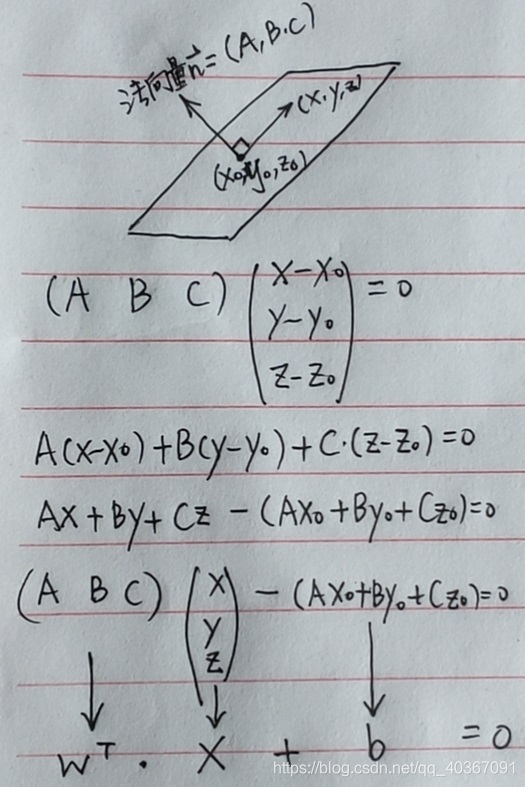 法向量n⃗=(A,B.C)
(x,y,z)
(x0,y0,z0)
(A B C) (x-x0 y-y0 z-z0) = 0
A(x-x0)+B(y-y0)+C·(z-z0)=0
Ax+By+Cz-(Ax0+By0+Cz0)=0
(A B C) (x y z) - (Ax0+By0+Cz0)=0
w^T · x + b = 0
https://blog.csdn.net/qq_40367091